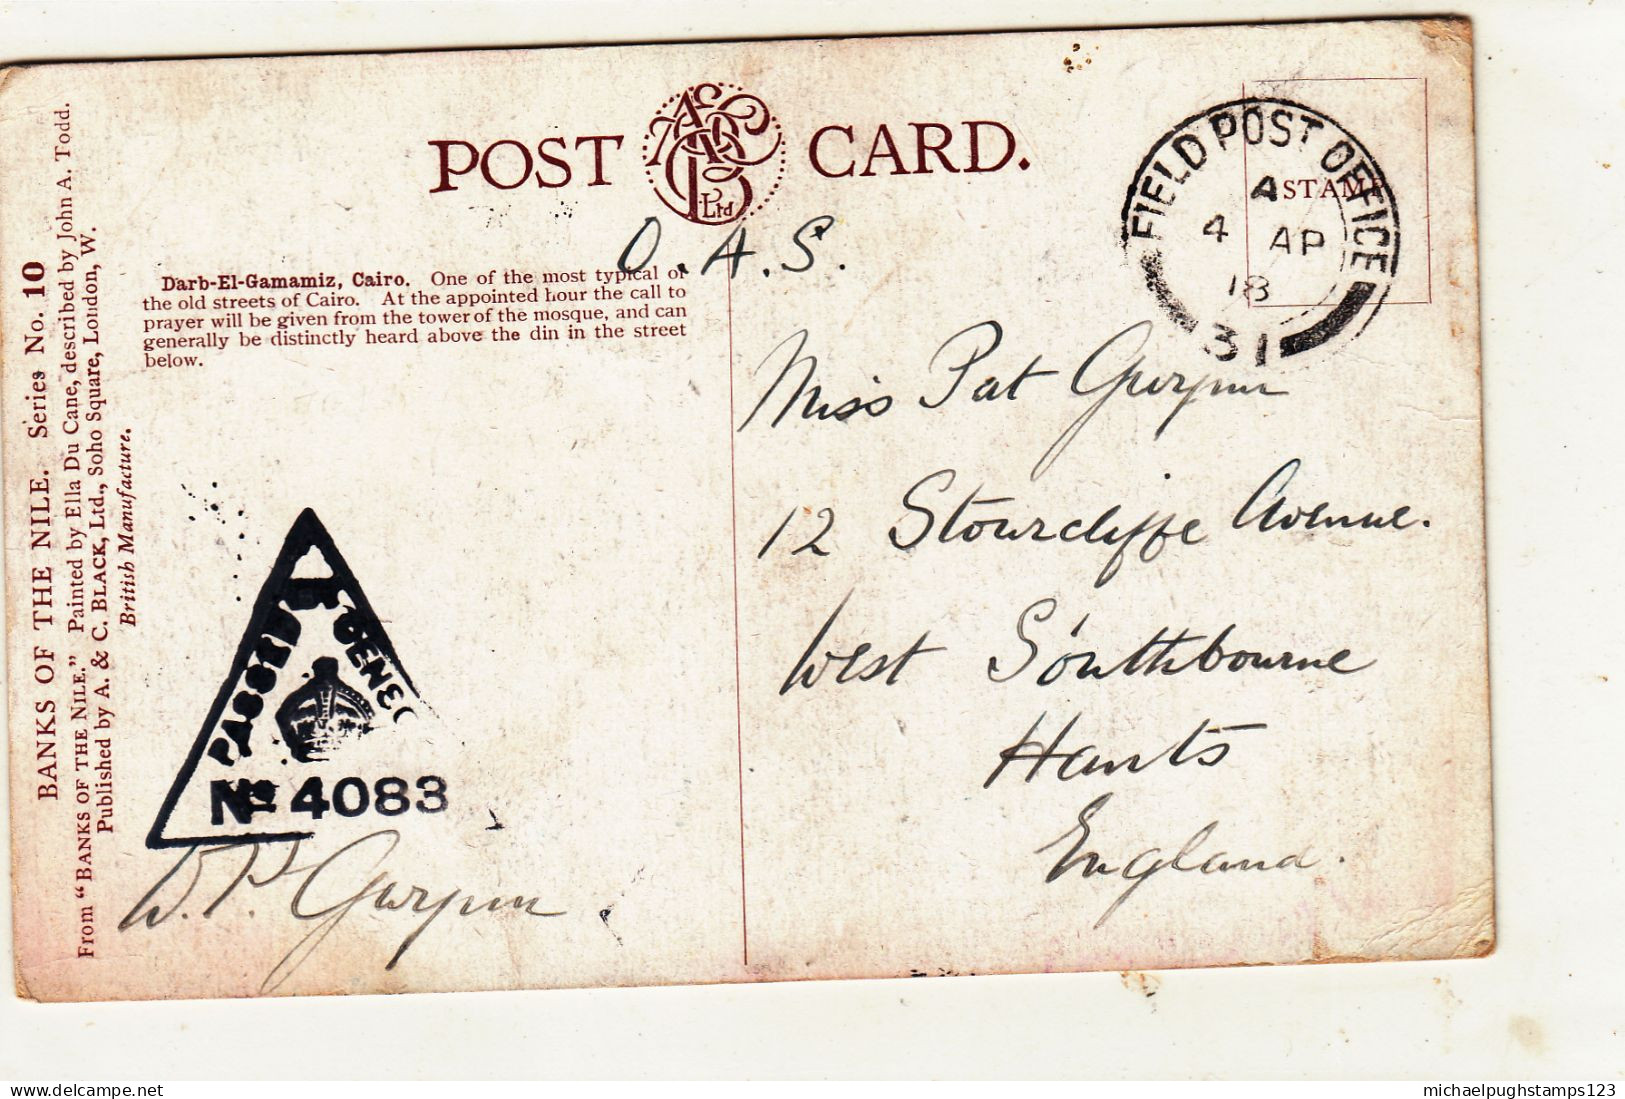 BANKS OF THE NILE. Series No. 10
From "BANKS OF THE NILE." Painted by Ella Du Cane, described by John A. Todd.
Published by A. & C. BLACK, Ltd., Soho Square, London, W.
British Manufacture.
POST CARD.
Ltd
O.A.S.
Darb-El-Gamamiz, Cairo. One of the most typical of
the old streets of Cairo. At the appointed hour the call to
prayer will be given from the tower of the mosque, and can
generally be distinctly heard above the din in the street
below.
STAMP
FIELD POST OFFICE
A
4 AP
18
31
Miss Pat
12 Stourcliffe Avenue.
West Southbourne
Hants
England.
PASSED
No 4083
michaelpughstamps123